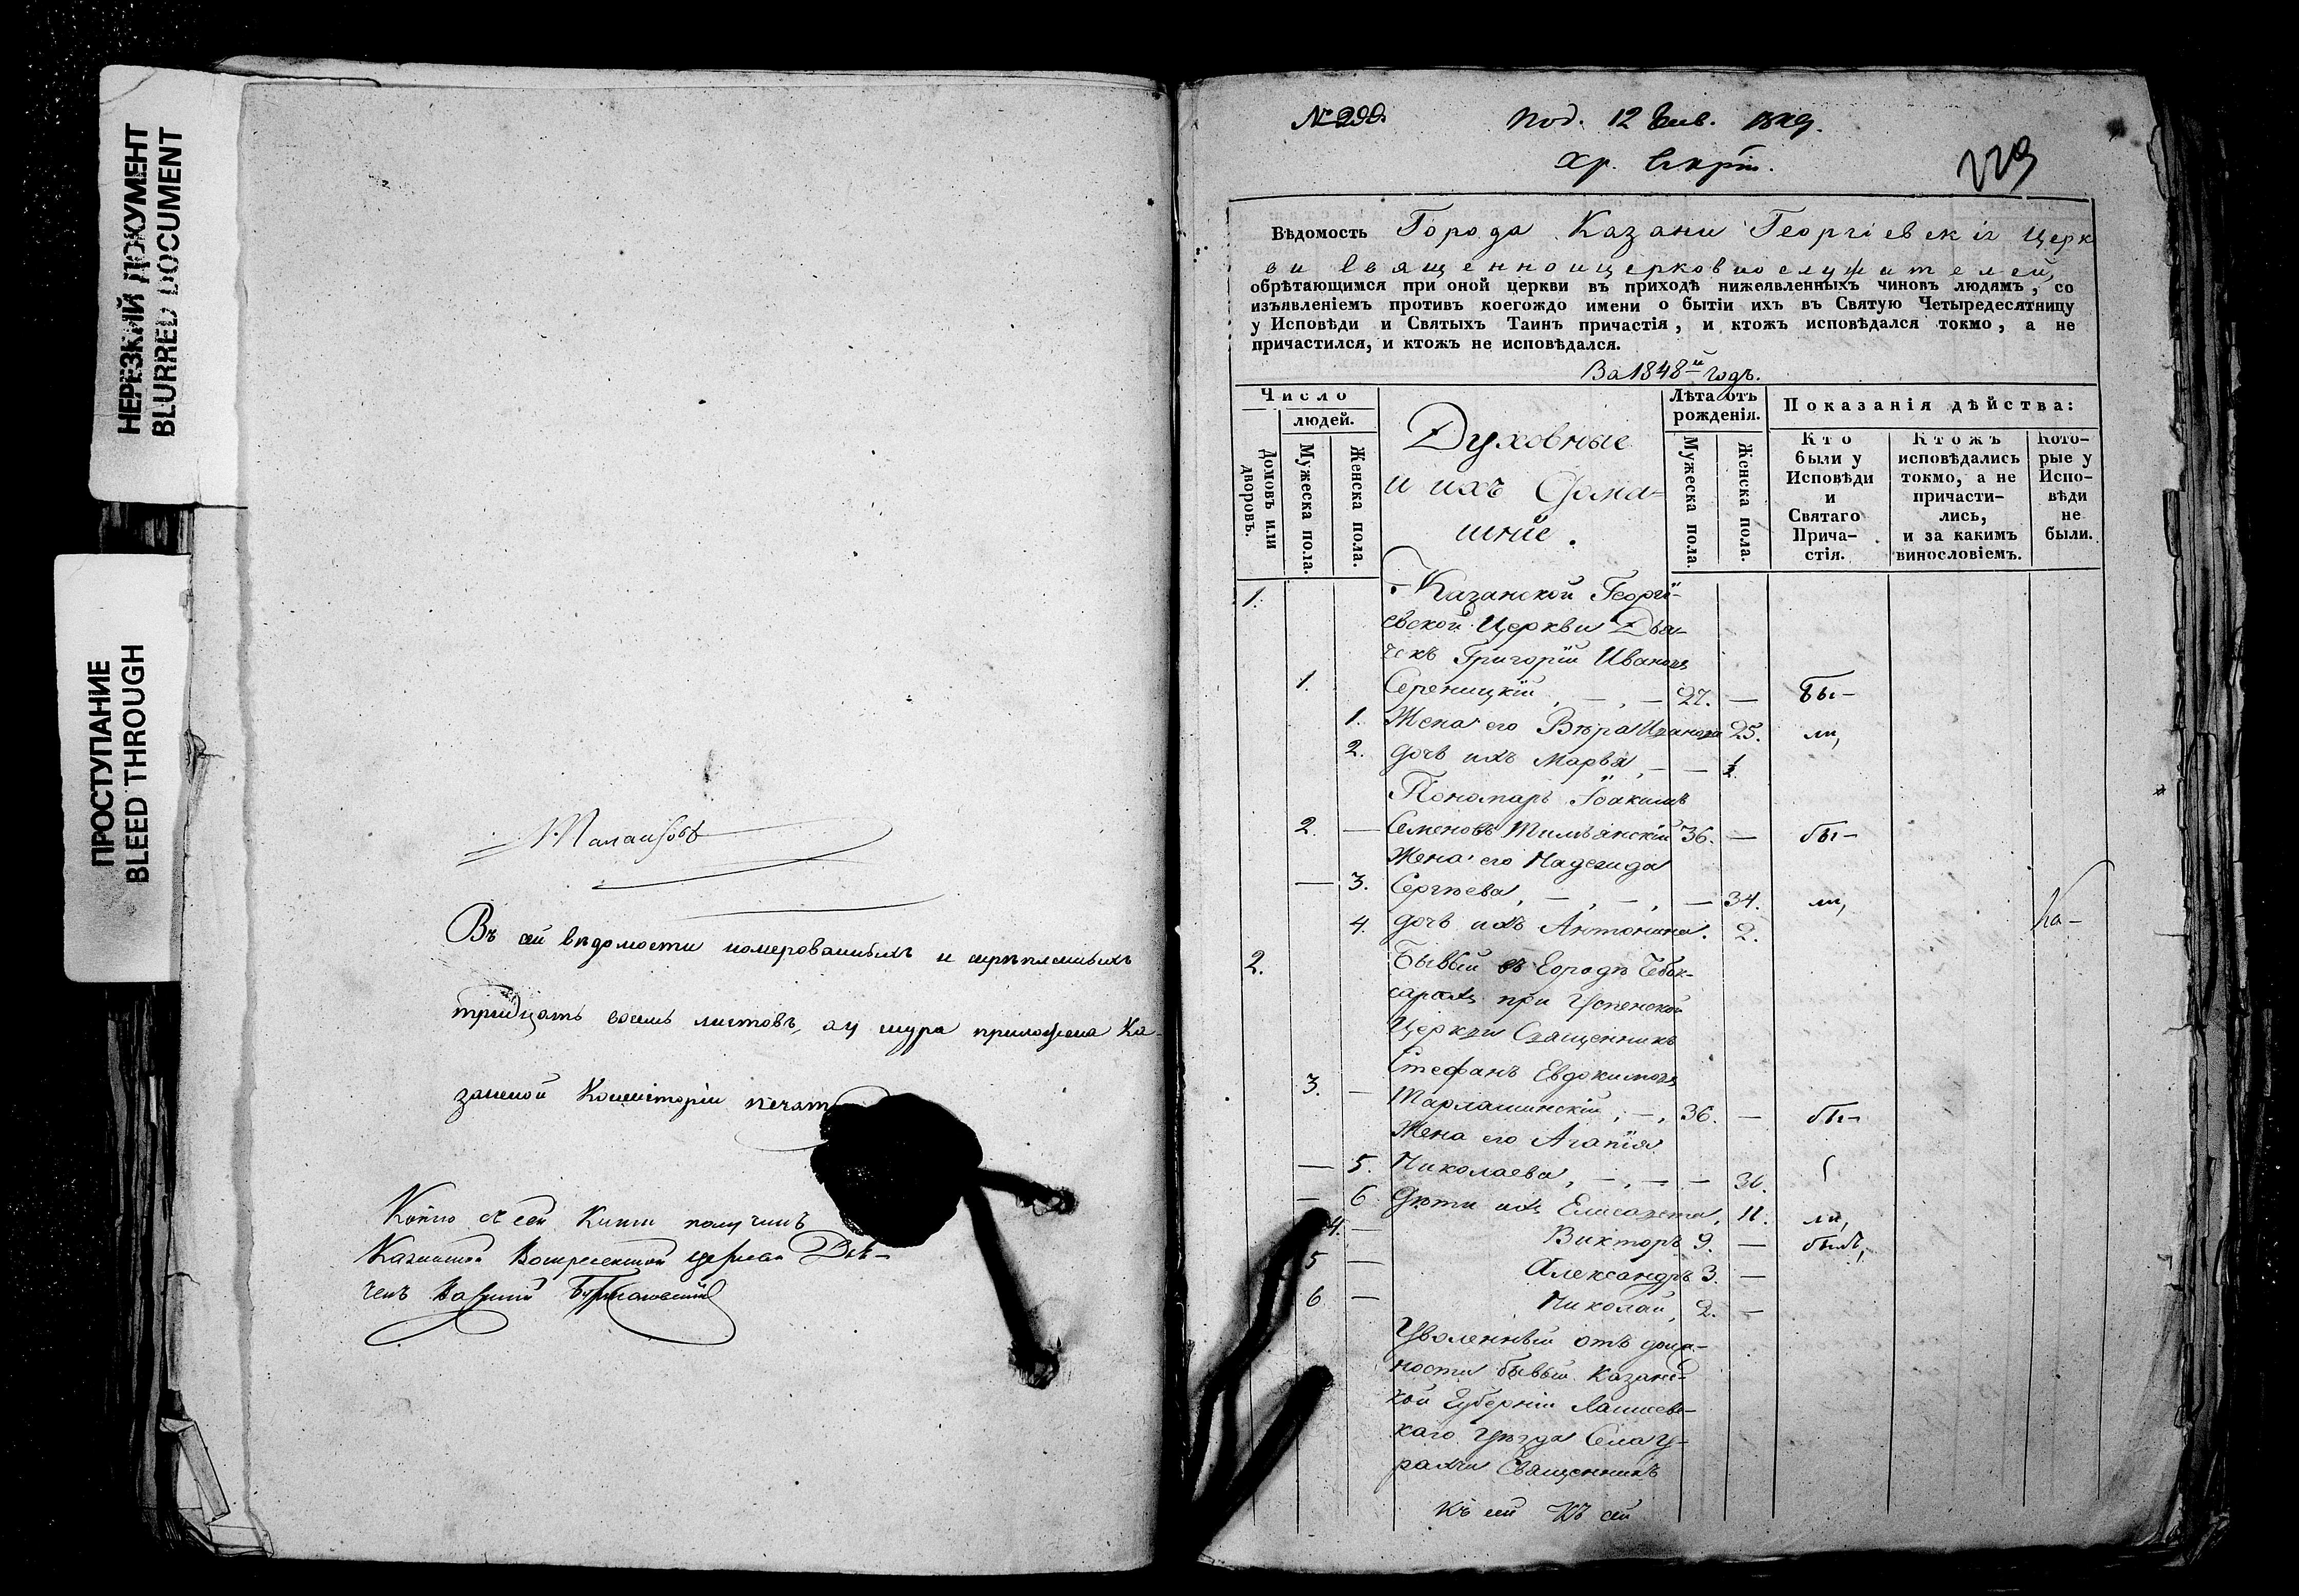 НЕРЕЗКИЙ ДОКУМЕНТ
BLURRED DOCUMENT
ПРОСТУПАНИЕ
BLEED THROUGH
Въ сей вѣдомости номерованныхъ и скрѣпленныхъ
тридцать восемь листовъ, а у шнура приложена Ка-
занской Консисторіи печать
Копію съ сей Книги получилъ
Казанской Воскресенской церкви Дья-
чекъ
Под. 12 Янв. 1849.
229
Вѣдомость Города Казани Георгіевскія Церк
ви священноицерковнослужителей,
обрѣтающимся при оной церкви въ приходѣ нижеявленныхъ чиновъ людямъ, со
изъявленіемъ противъ коегождо имени о бытіи ихъ въ Святую Четыредесятницу
у Исповѣди и Святыхъ Таинъ причастія, и ктожъ исповѣдался токмо, а не
причастился, и ктожъ не исповѣдался.
За 1848й годъ.
Число
людей.
Домовъ или дворовъ.
Мужеска пола.
Женска пола.
Духовные
и ихъ Дома=
шніе.
Лѣта отъ рожденія.
Мужеска пола.
Женска пола.
Показанія дѣйства:
Кто были у Исповѣди и Святаго Прича-стія.
Ктожъ исповѣдались токмо, а не причасти-лись, и за какимъ винословіемъ.
Кото-рые у Испо-вѣди не были.
1. Казанской Георгі-
евской Церкви Дья-
чекъ Григорій Ивановъ
1. Сереницкій, — , — 27. — бы-
1. Жена его Вѣра Иванова 25. ли,
2. дочь ихъ Марья, — — ½.
Пономарь Іоакимъ
2. — Семеновъ Тимьянскій 36. — бы-
Жена его Надежда
— 3. Сергѣева, — , — , — 34. ли,
4. дочь ихъ Антонина. 2. Ка-
2. Бывый въ Городѣ Чебок-
сарахъ при Успенской
Церкви Священникъ
Стефанъ Евдокимовъ
3. — , — , 36. — бы-
Жена его Агапія
— 5. Николаева, — , — — 30.
— 6. Дѣти ихъ Елисавета, 11. ли,
4. — Викторъ 9. — былъ,
5 — Александръ 3. —
6 — Николай, 2. —
Уволенный отъ долж-
ности бывый Казанс-
кой Губерніи Лаишевс-
каго Уѣзда Села У-
рахчи Священникъ
Къ сей Къ сей